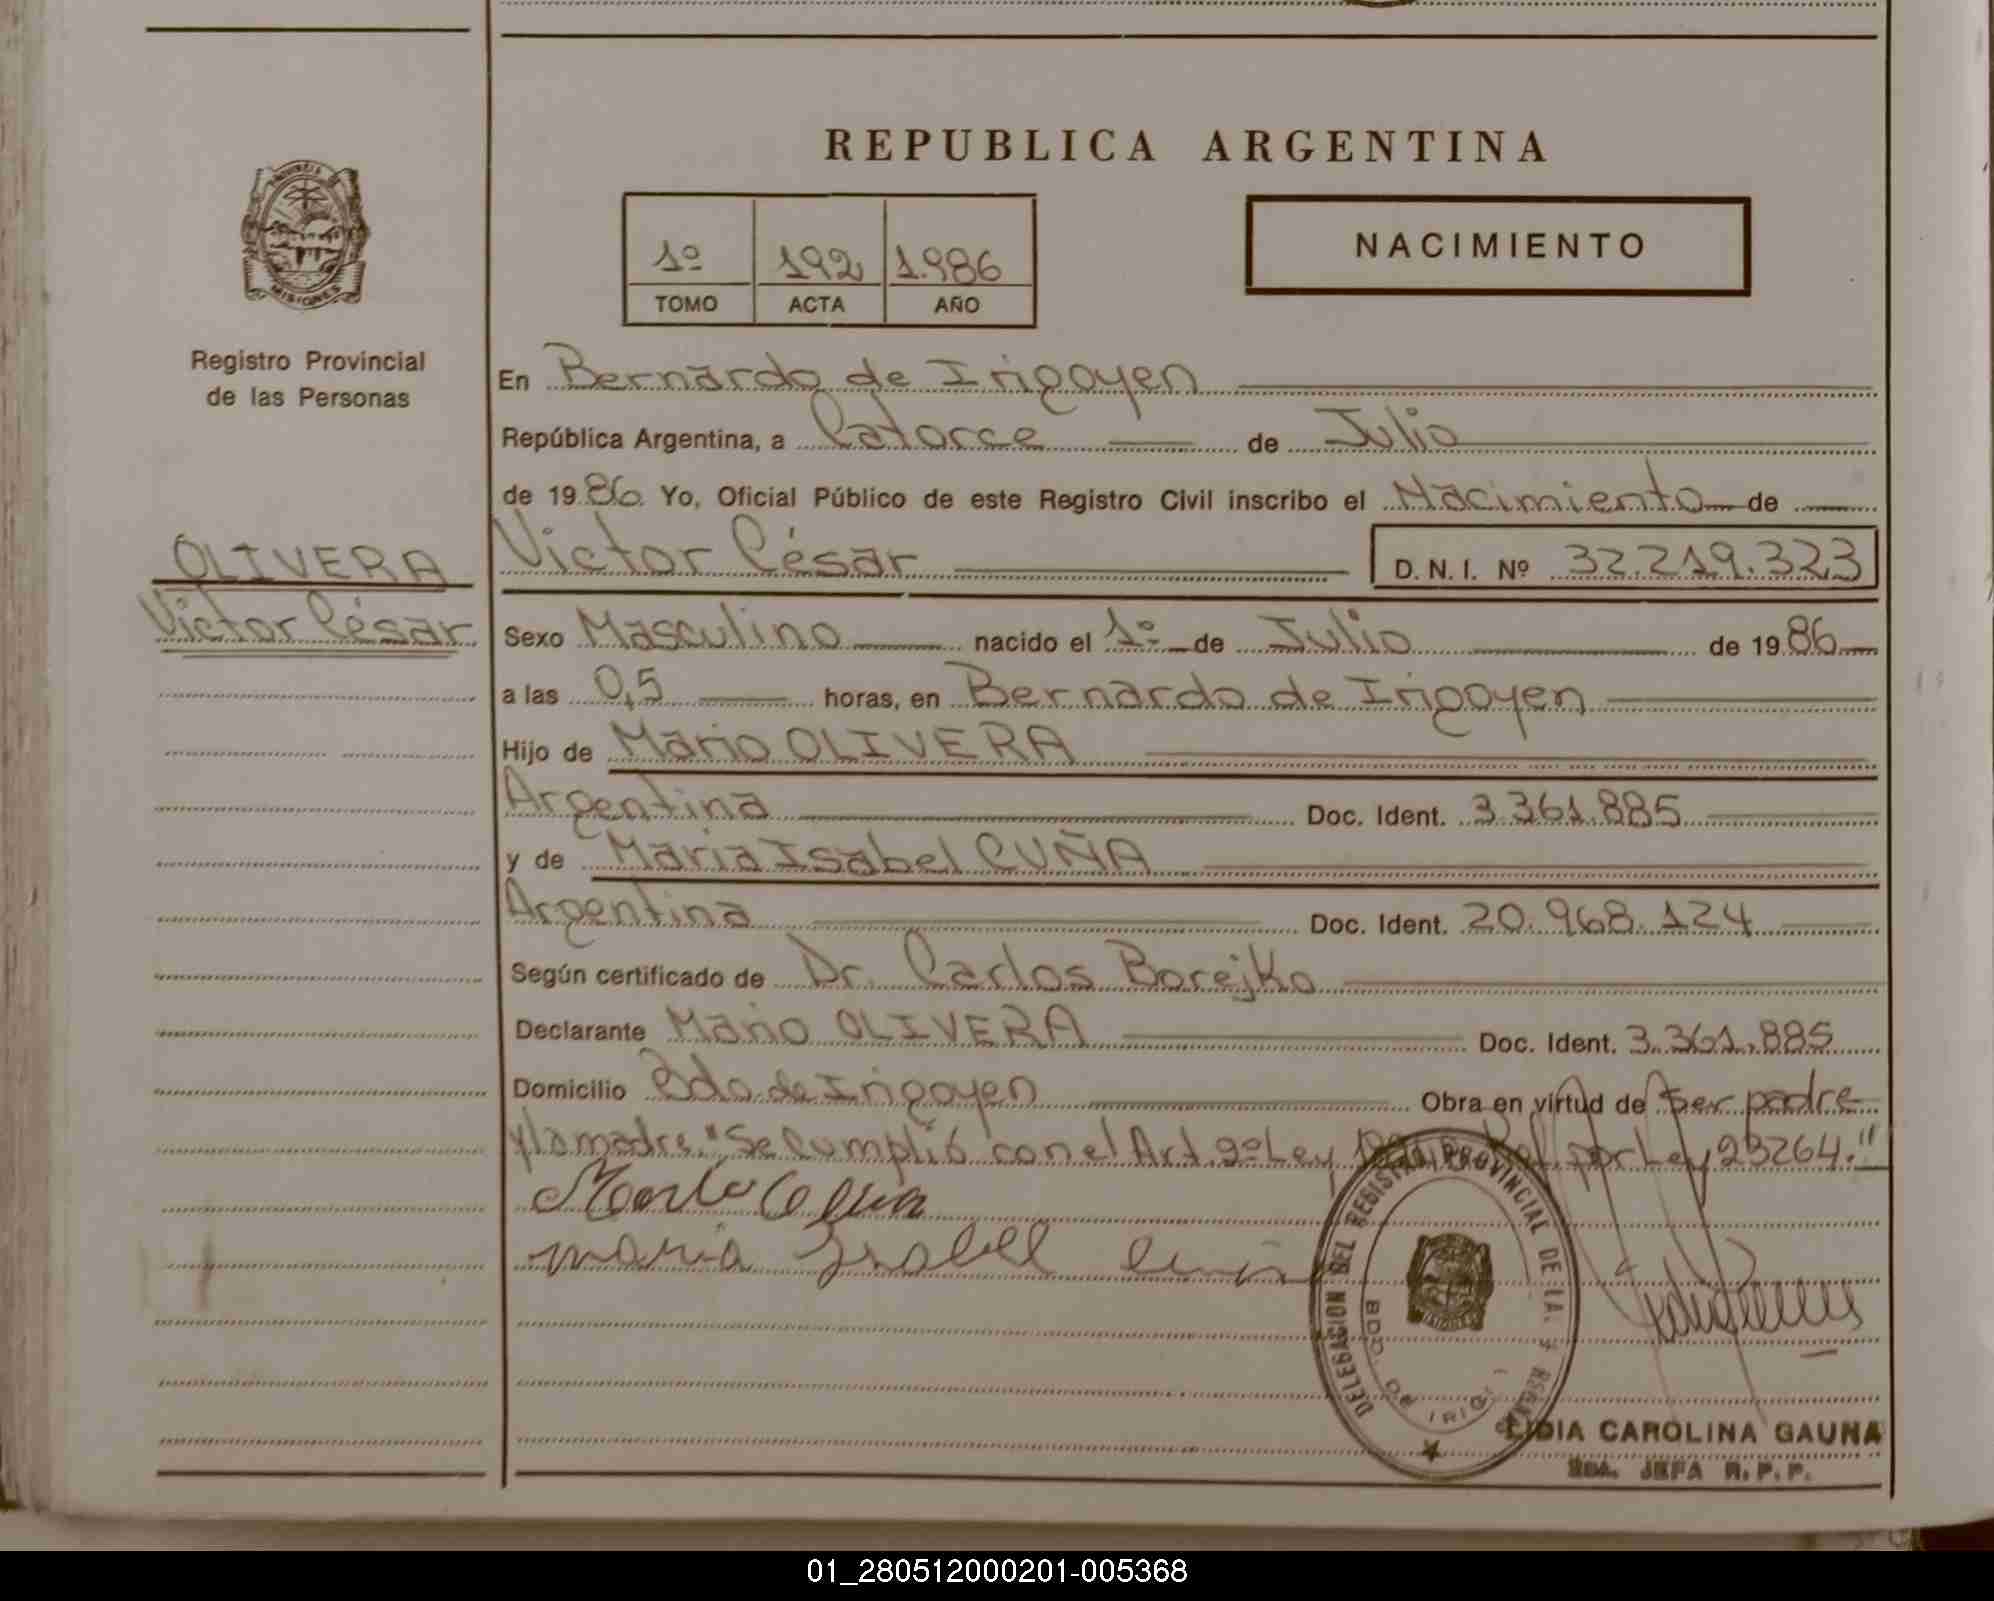 REPUBLICA ARGENTINA
PROVINCIA DE
MISIONES
Registro Provincial
de las Personas
1º 192 1.986
TOMO ACTA AÑO
NACIMIENTO
En Bernardo de Irigoyen
República Argentina, a Catorce de Julio
de 1986 Yo, Oficial Público de este Registro Civil inscribo el Nacimiento de
OLIVERA
Victor César
Victor César D. N. I. Nº 32.219.323
Sexo Masculino nacido el 1º de Julio de 1986
a las 0,5 horas, en Bernardo de Irigoyen
Hijo de Mario OLIVERA
Argentina Doc. Ident. 3.361.885
y de Maria Isabel CUÑA
Argentina Doc. Ident. 20.968.124
Según certificado de Dr. Carlos Borejko
Declarante Mario OLIVERA Doc. Ident. 3.361.885
Domicilio Bdo. de Irigoyen Obra en virtud de ser padre
y la madre. "Se cumplió con el Art. 9º Ley por Ley 23264."
Maria Isabel
DELEGACION DEL REGISTRO PROVINCIAL DE LAS
BDO. DE IRIG
LIDIA CAROLINA GAUNA
JEFA R. P. P.
01_280512000201-005368